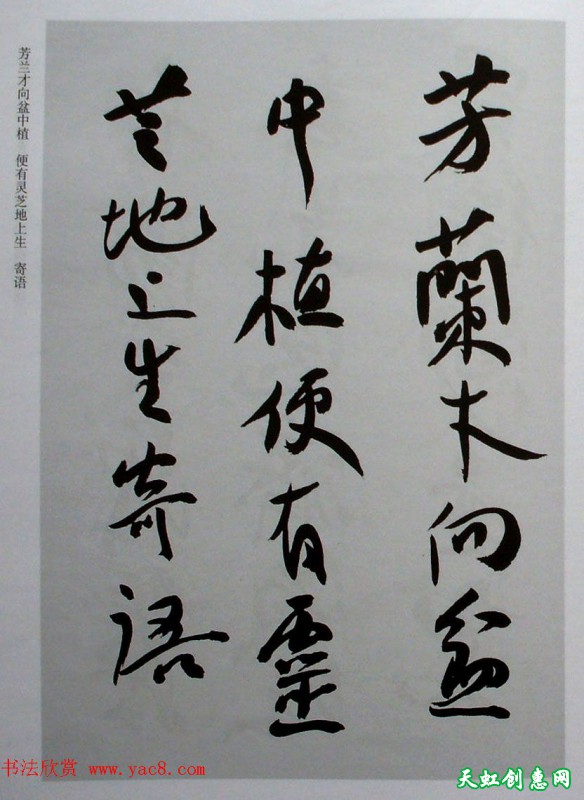 芳蘭才向盆
中植便有靈
芝地上生寄語
芳兰才向盆中植　便有灵芝地上生　寄语
书法欣赏 www.yac8.com
天虹创惠网